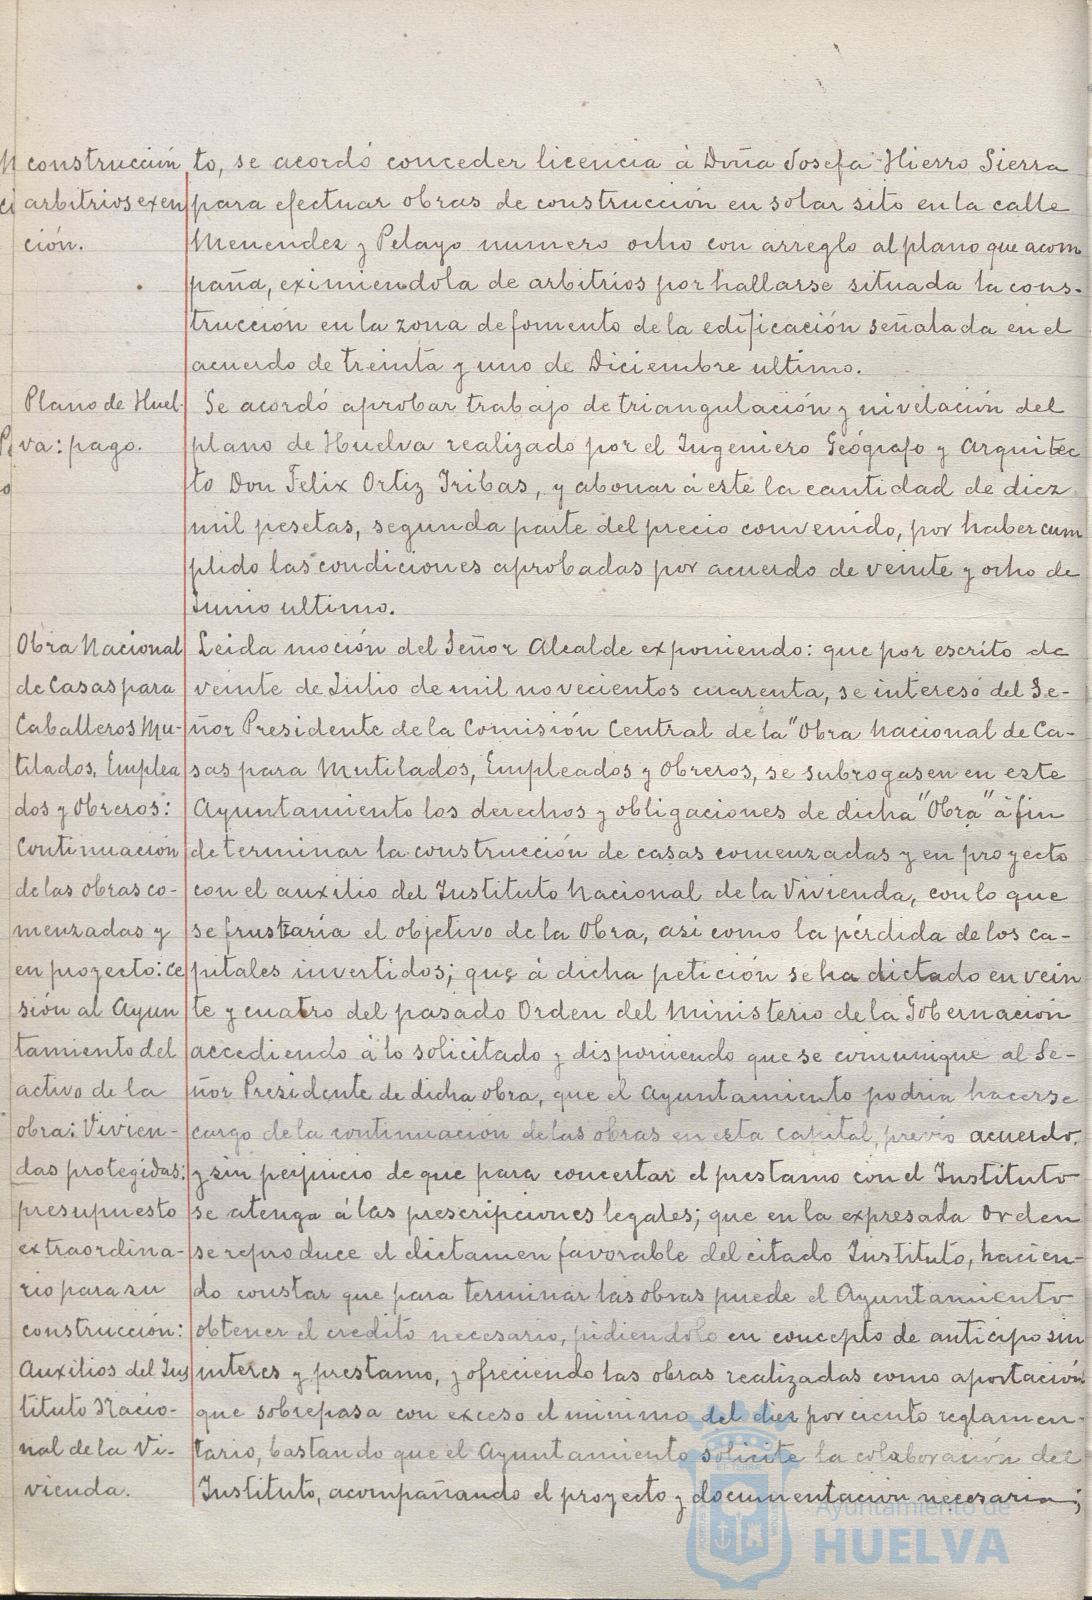 construcción
arbitrios exen
ción.
to, se acordó conceder licencia á Doña Josefa Hierro Sierra
para efectuar obras de construcción en solar sito en la calle
Menendez y Pelayo numero ocho con arreglo al plano que acom
paña, eximiendola de arbitrios por hallarse situada la cons-
trucción en la zona de fomento de la edificación señalada en el
acuerdo de treinta y uno de Diciembre ultimo.
Plano de Huel-
va: pago.
Se acordó aprobar trabajo de triangulación y nivelación del
plano de Huelva realizado por el Ingeniero Geógrafo y Arquitec
to Don Felix Ortiz Iribas, y abonar á este la cantidad de diez
mil pesetas, segunda parte del precio convenido, por haber cum
plido las condiciones aprobadas por acuerdo de veinte y ocho de
Junio ultimo.
Obra Nacional
de Casas para
Caballeros Mu-
tilados, Emplea
dos y Obreros:
Continuación
de las obras co-
menzadas y
en proyecto: ce
sión al Ayun
tamiento del
activo de la
obra: Vivien-
das protegidas:
presupuesto
extraordina-
rio para su
construcción:
Auxilios del Ins
tituto Nacio-
nal de la Vi-
vienda.
Leida moción del Señor Alcalde exponiendo: que por escrito de
veinte de Julio de mil novecientos cuarenta, se interesó del Se-
ñor Presidente de la Comisión Central de la "Obra Nacional de Ca-
sas para Mutilados, Empleados y Obreros, se subrogasen en este
Ayuntamiento los derechos y obligaciones de dicha "Obra" á fin
de terminar la construcción de casas comenzadas y en proyecto
con el auxilio del Instituto Nacional de la Vivienda, con lo que
se frustaría el objetivo de la Obra, asi como la pérdida de los ca-
pitales invertidos; que á dicha petición se ha dictado en vein
te y cuatro del pasado Orden del Ministerio de la Gobernación
accediendo á lo solicitado y disponiendo que se comunique al Se-
ñor Presidente de dicha obra, que el Ayuntamiento podria hacerse
cargo de la continuación de las obras en esta capital, previo acuerdo,
y sin perjuicio de que para concertar el prestamo con el Instituto
se atenga á las prescripciones legales; que en la expresada Orden
se reproduce el dictamen favorable del citado Instituto, hacien-
do constar que para terminar las obras puede el Ayuntamiento
obtener el credito necesario, pidiendolo en concepto de anticipo sin
interes y prestamo, y ofreciendo las obras realizadas como aportación
que sobrepasa con exceso el minimo del diez por ciento reglamen-
tario, bastando que el Ayuntamiento solicite la colaboración del
Instituto, acompañando el proyecto y documentación necesaria;
Ayuntamiento de
HUELVA